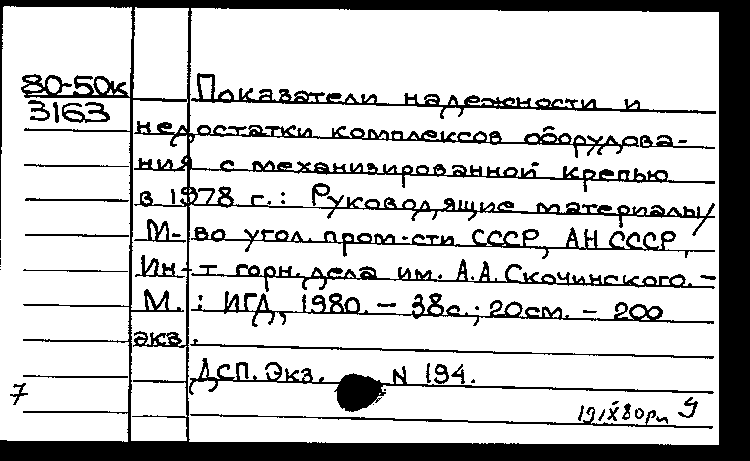 80-50к
3163
Показатели надежности и
недостатки комплексов оборудова-
ния с механизированной крепью
в 1978 г.: Руководящие материалы/
М-во угол. пром-сти СССР, АН СССР,
Ин-т горн. дела им. А.А. Скочинского. -
М. : ИГД, 1980. - 38с.; 20см. - 200
экз.
ДСП. Экз. N 194.
7
19IX80рп